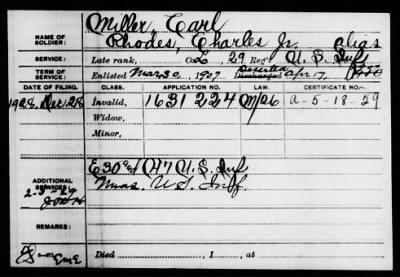 Miller, Carl
NAME OF SOLDIER: Rhodes, Charles Jr. alias
SERVICE: Late rank, Co. 29 Reg't U. S. Inf
TERM OF SERVICE: Enlisted Mar 30, 1907 Discharged Deserted Apr. 17,
DATE OF FILING. CLASS. APPLICATION NO. LAW. CERTIFICATE NO.
1928 Dec 28 Invalid, 1631224 a-5-18-29
Widow,
Minor,
ADDITIONAL SERVICES: E 30 and 47 U. S. Inf
2-5-29 Unas. U. S. Inf
REMARKS:
EmE Died , 1 , at